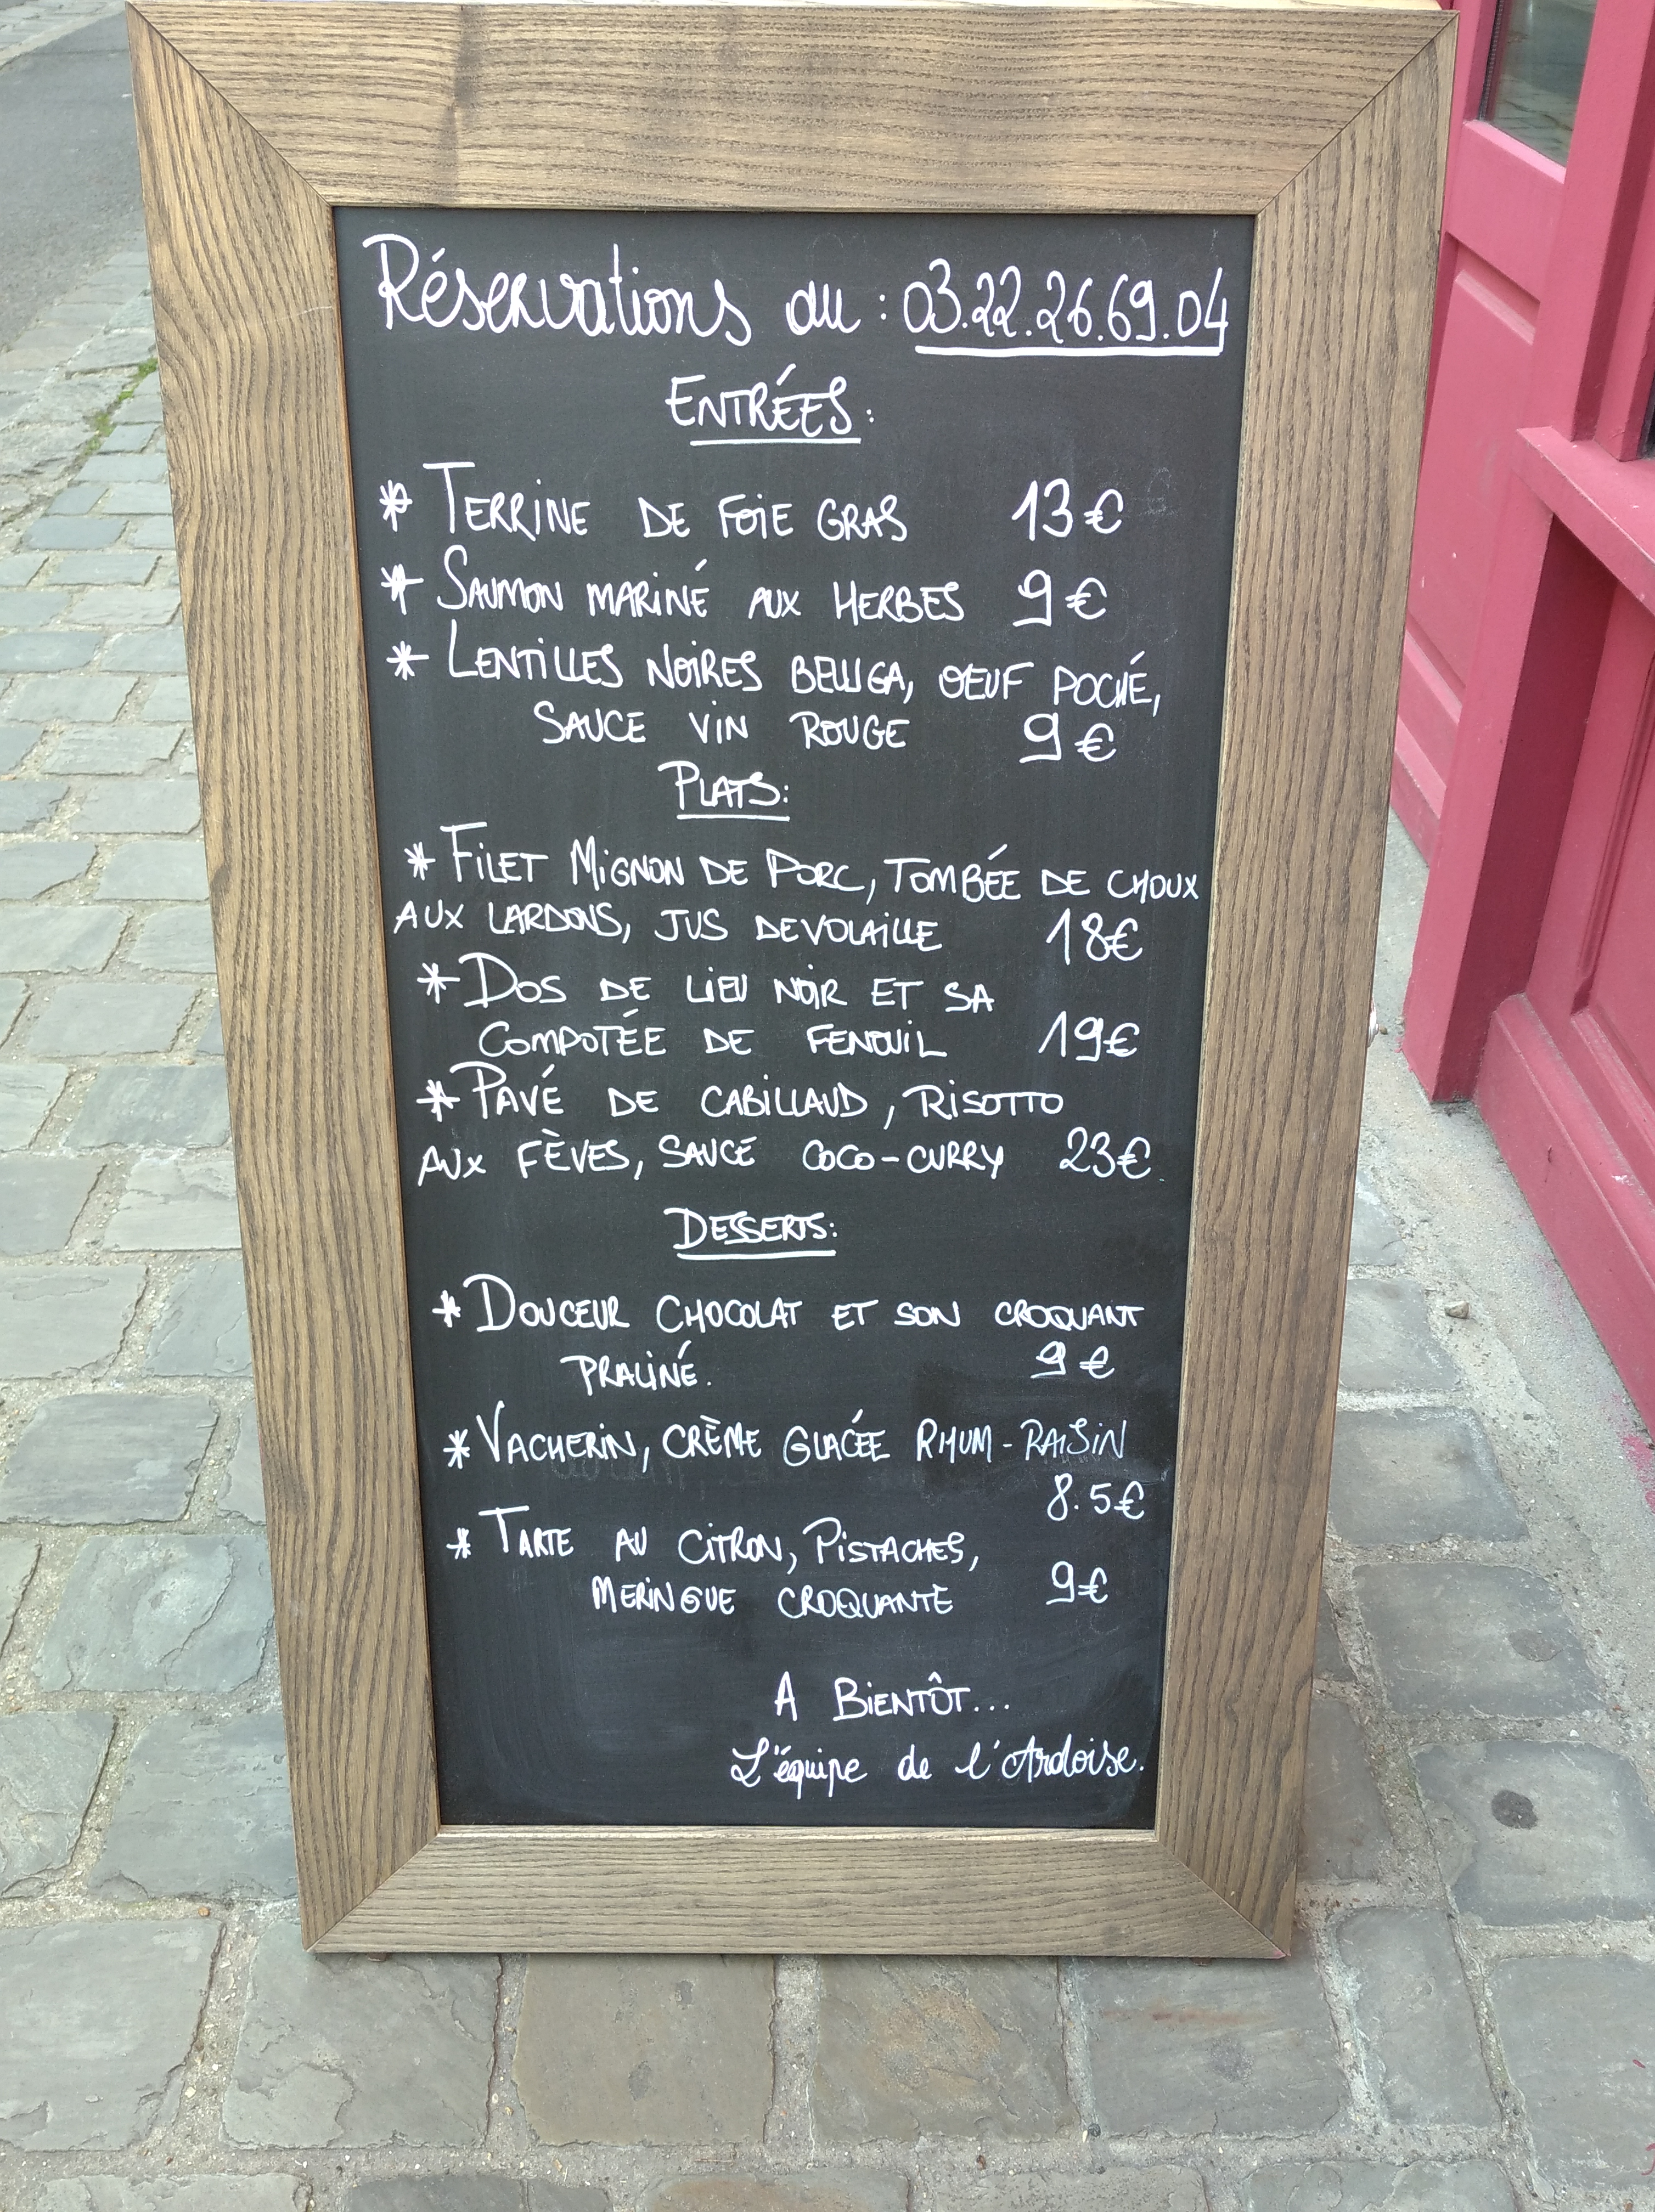 Réservations au : 03.22.26.69.04
ENTRÉES:
* TERRINE DE FOIE GRAS 13€
* SAUMON MARINÉ AUX HERBES 9€
* LENTILLES NOIRES BELUGA, OEUF POCHÉ,
SAUCE VIN ROUGE 9€
PLATS:
* FILET MIGNON DE PORC, TOMBÉE DE CHOUX
AUX LARDONS, JUS DE VOLAILLE 18€
* DOS DE LIEU NOIR ET SA
COMPOTÉE DE FENOUIL 19€
* PAVÉ DE CABILLAUD, RISOTTO
AUX FÈVES, SAUCE COCO-CURRY 23€
DESSERTS:
* DOUCEUR CHOCOLAT ET SON CROQUANT
PRALINÉ. 9€
* VACHERIN, CRÈME GLACÉE RHUM-RAISIN
8.5€
* TARTE AU CITRON, PISTACHES,
MERINGUE CROQUANTE 9€
A BIENTÔT...
L'équipe de l'Ardoise.